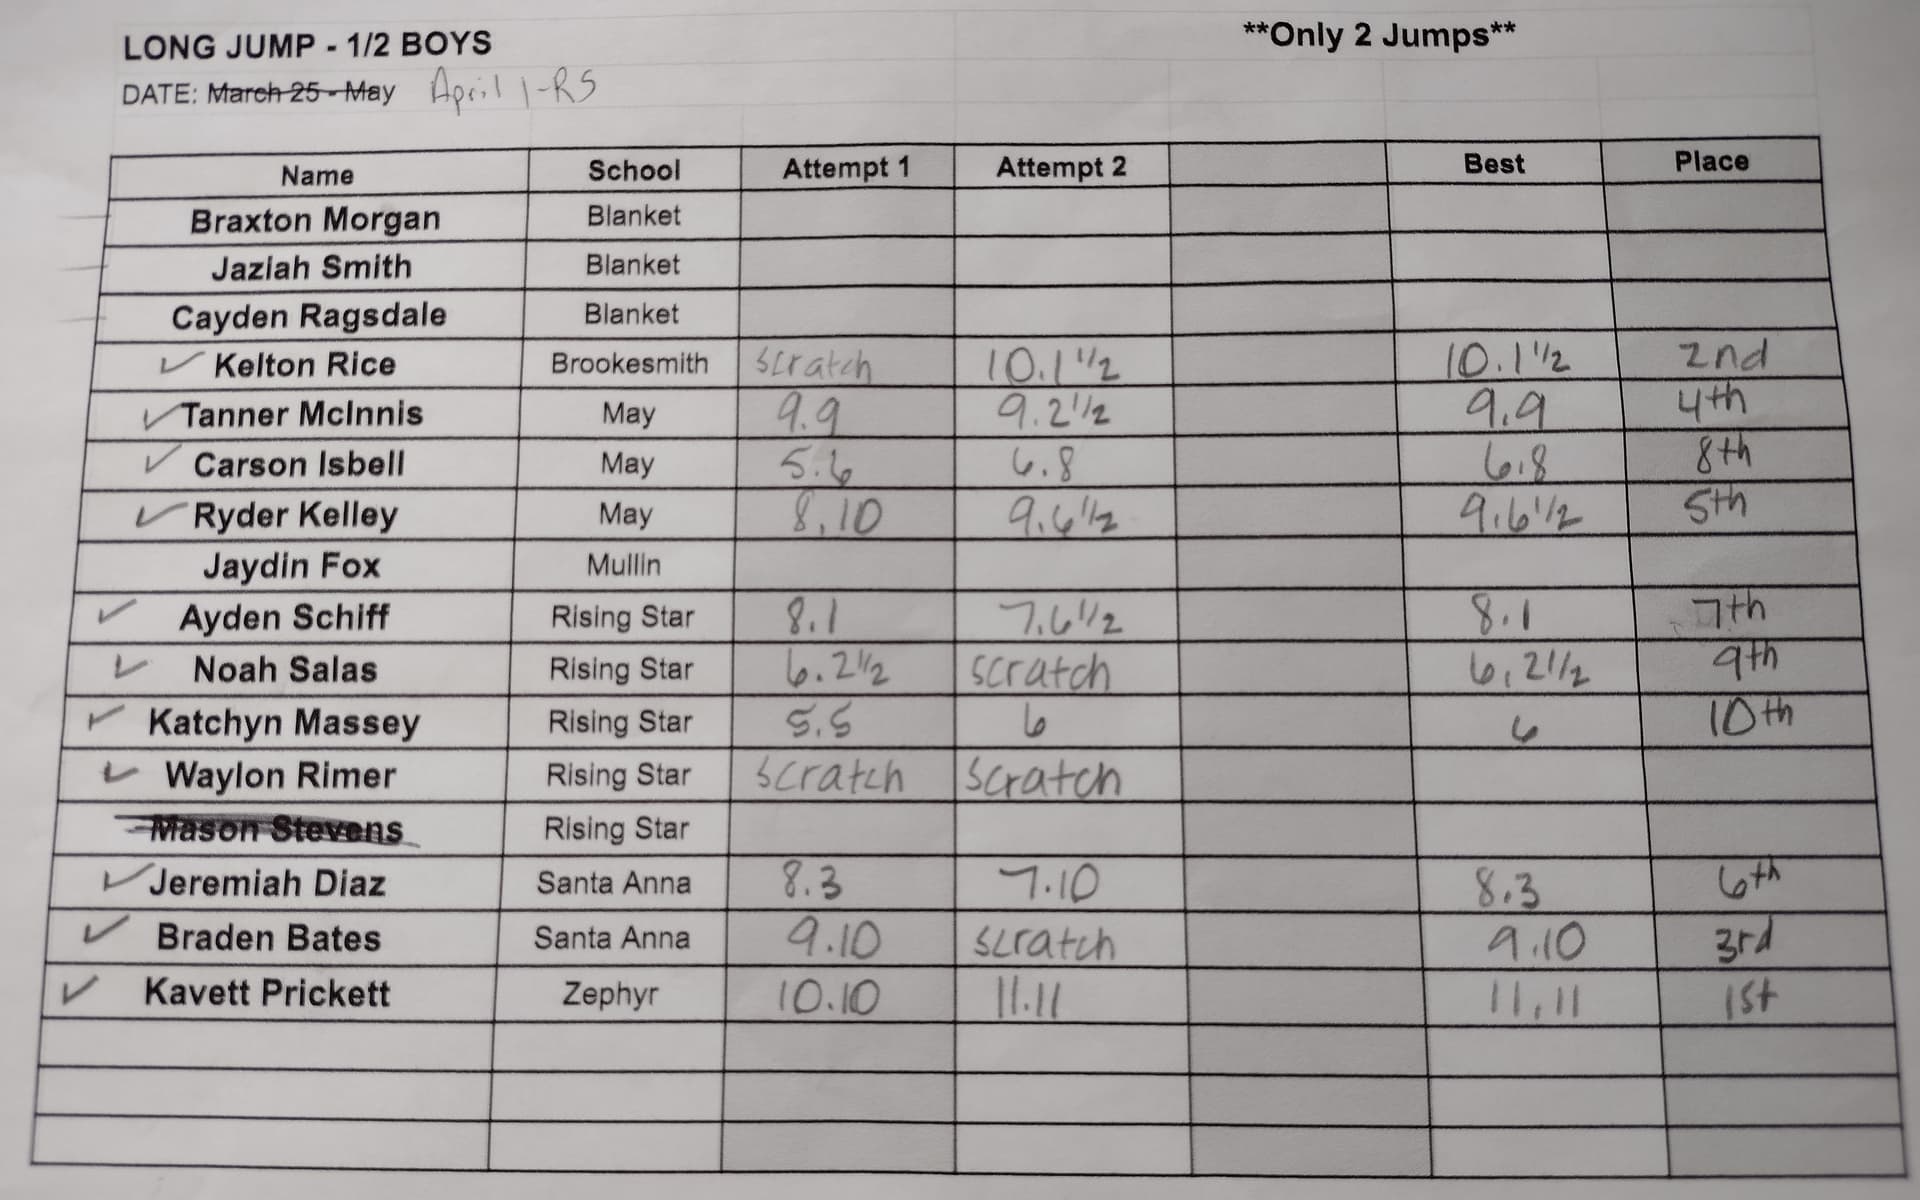 LONG JUMP - 1/2 BOYS **Only 2 Jumps**
DATE: March 25 - May April 1-RS
Name School Attempt 1 Attempt 2 Best Place
Braxton Morgan Blanket
Jaziah Smith Blanket
Cayden Ragsdale Blanket
Kelton Rice Brookesmith scratch 10.1 1/2 10.1 1/2 2nd
Tanner McInnis May 9.9 9.2 1/2 9.9 4th
Carson Isbell May 5.6 6.8 6.8 8th
Ryder Kelley May 8.10 9.6 1/2 9.6 1/2 5th
Jaydin Fox Mullin
Ayden Schiff Rising Star 8.1 7.6 1/2 8.1 7th
Noah Salas Rising Star 6.2 1/2 scratch 6.2 1/2 9th
Katchyn Massey Rising Star 5.5 6 6 10th
Waylon Rimer Rising Star scratch scratch
Mason Stevens Rising Star
Jeremiah Diaz Santa Anna 8.3 7.10 8.3 6th
Braden Bates Santa Anna 9.10 scratch 9.10 3rd
Kavett Prickett Zephyr 10.10 11.11 11.11 1st